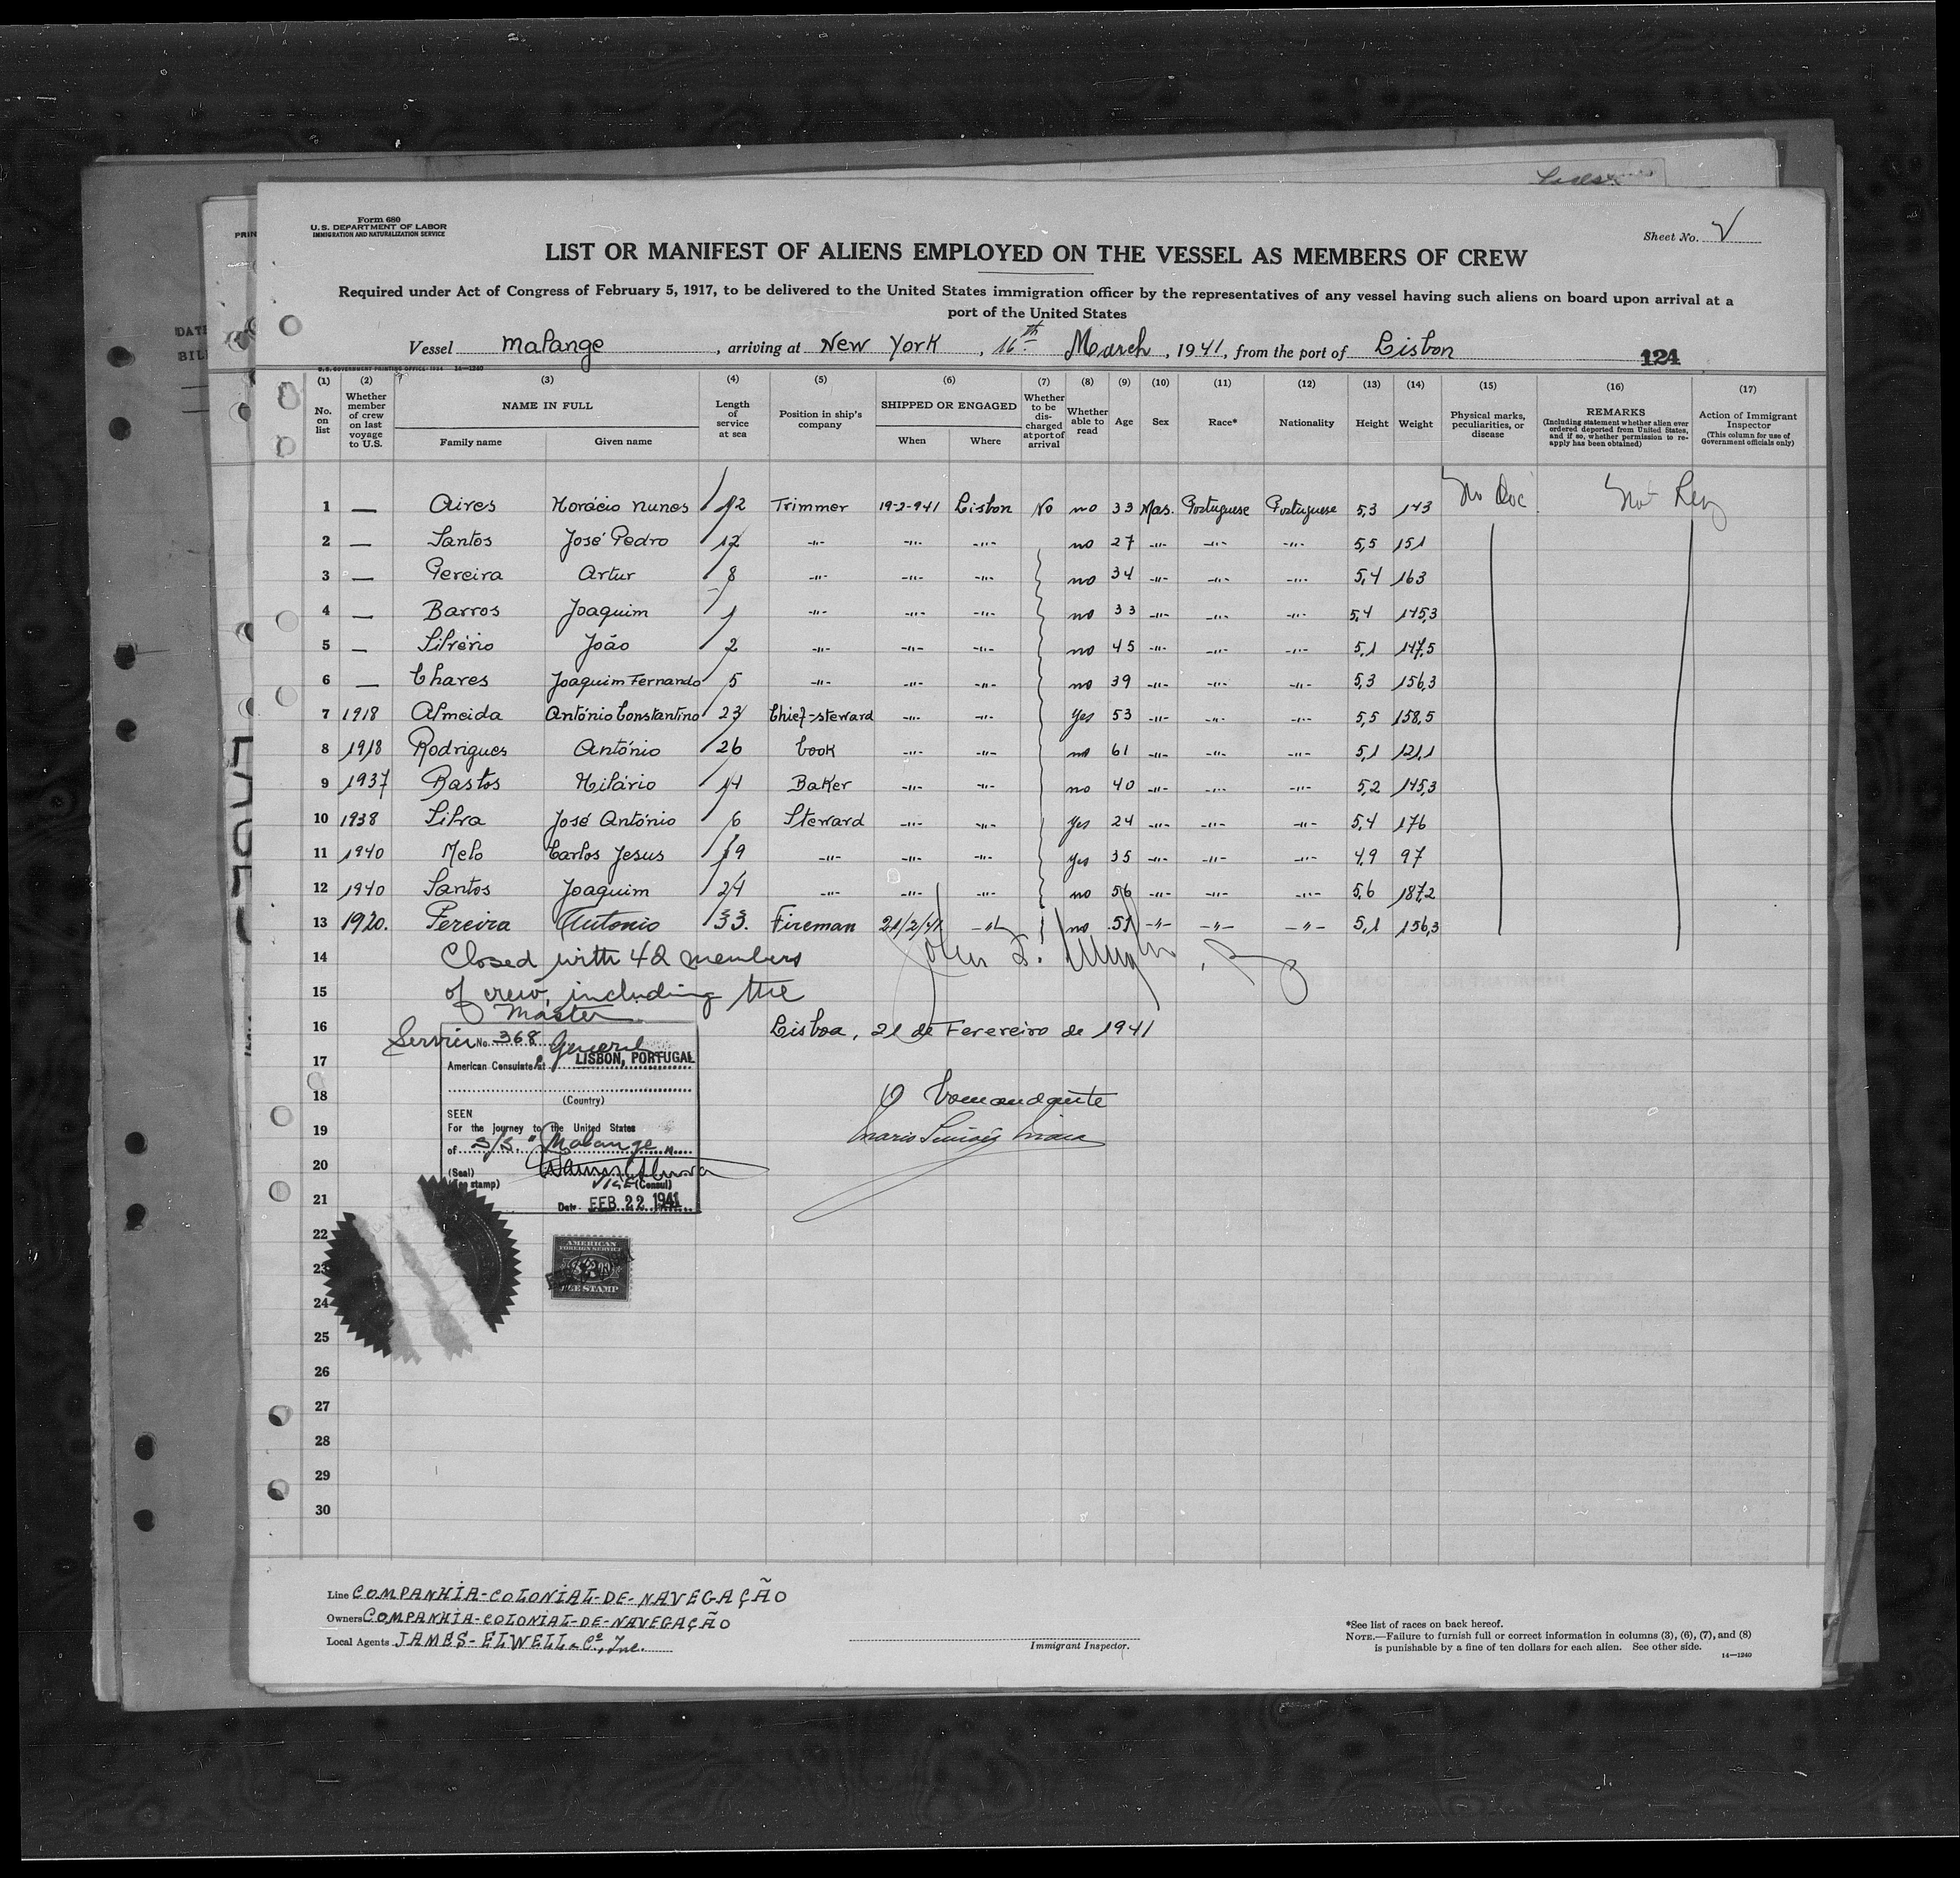 Form 680
U.S. DEPARTMENT OF LABOR
IMMIGRATION AND NATURALIZATION SERVICE
Sheet No. V
LIST OR MANIFEST OF ALIENS EMPLOYED ON THE VESSEL AS MEMBERS OF CREW
Required under Act of Congress of February 5, 1917, to be delivered to the United States immigration officer by the representatives of any vessel having such aliens on board upon arrival at a
port of the United States
Vessel Malange, arriving at New York, 16th March, 1941, from the port of Lisbon
124
(1) (2) (3) (4) (5) (6) (7) (8) (9) (10) (11) (12) (13) (14) (15) (16) (17)
No. on list
Whether member of crew on last voyage to U.S.
NAME IN FULL
Family name Given name
Length of service at sea
Position in ship's company
SHIPPED OR ENGAGED
When Where
Whether to be discharged at port of arrival
Whether able to read
Age
Sex
Race*
Nationality
Height
Weight
Physical marks, peculiarities, or disease
REMARKS
(Including statement whether alien ever ordered deported from United States, and if so, whether permission to reapply has been obtained)
Action of Immigrant Inspector
(This column for use of Government officials only)
1 — Aires Horácio Nunes 12 Trimmer 19-2-941 Lisbon No no 33 Mas. Portuguese Portuguese 5,3 143 No Doc
2 — Santos José Pedro 12 -"- -"- -"- no 27 -"- -"- -"- 5,5 151
3 — Pereira Artur 8 -"- -"- -"- no 34 -"- -"- -"- 5,4 163
4 — Barros Joaquim 1 -"- -"- -"- no 33 -"- -"- -"- 5,4 145,3
5 — Silvério João 2 -"- -"- -"- no 45 -"- -"- -"- 5,1 147,5
6 — Chaves Joaquim Fernando 5 -"- -"- -"- no 39 -"- -"- -"- 5,3 156,3
7 1918 Almeida António Constantino 23 Chief-steward -"- -"- Yes 53 -"- -"- -"- 5,5 158,5
8 1918 Rodrigues António 26 Cook -"- -"- no 61 -"- -"- -"- 5,1 121,1
9 1937 Bastos Hilário 14 Baker -"- -"- no 40 -"- -"- -"- 5,2 145,3
10 1938 Silva José António 6 Steward -"- -"- Yes 24 -"- -"- -"- 5,4 176
11 1940 Melo Carlos Jesus 19 -"- -"- -"- Yes 35 -"- -"- -"- 4,9 97
12 1940 Santos Joaquim 24 -"- -"- -"- no 56 -"- -"- -"- 5,6 187,2
13 1920. Pereira Antonio 33. Fireman 21/2/41 -"- no 51 -"- -"- -"- 5,1 156,3
14 Closed with 42 members
15 of crew, including the
Master
16 Lisboa, 21 de Fevereiro de 1941
Service No. 368 General
17 American Consulate at LISBON, PORTUGAL
18 (Country)
O Comandante
SEEN
19 For the journey to the United States
of S/S. "Malange"
20 (Seal)
(Fee stamp) VICE (Consul)
21 Date FEB 22 1941
22 AMERICAN
FOREIGN SERVICE
23
FEE STAMP
24
25
26
27
28
29
30
Line COMPANHIA-COLONIAL-DE-NAVEGAÇÃO
Owners COMPANHIA-COLONIAL-DE-NAVEGAÇÃO
Local Agents JAMES-ELWELL & Cº, Inc.
Immigrant Inspector.
*See list of races on back hereof.
NOTE.—Failure to furnish full or correct information in columns (3), (6), (7), and (8)
is punishable by a fine of ten dollars for each alien. See other side.
14—1240